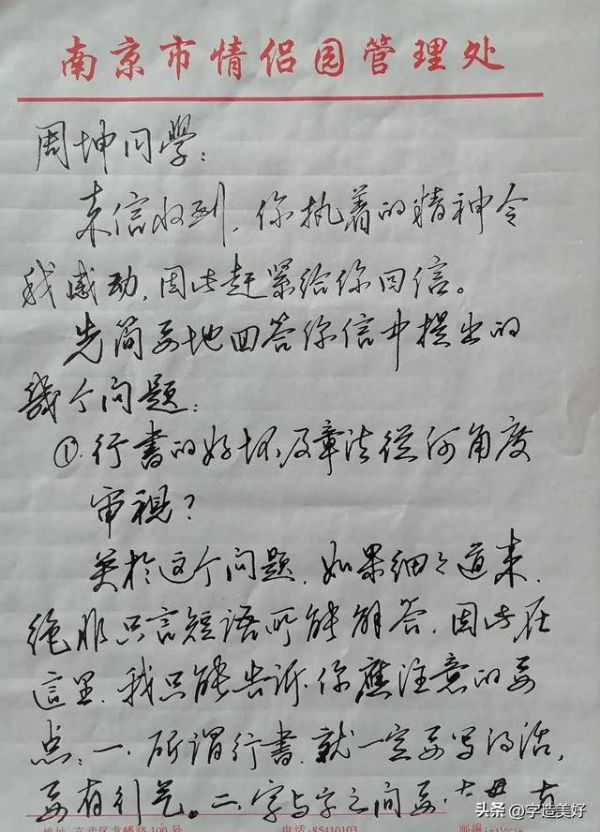 南京市情侣园管理处
周坤同學：
来信收到，你执着的精神令
我感动，因此赶紧给你回信。
先简要地回答你信中提出的
幾个问题：
①.行書的好坏及章法從何角度
审视？
关於这个问题，如果细々道来，
绝非只言短语所能解答，因此在
這里，我只能告诉你應注意的要
点：一、所谓行書，就一定要写得活，
要有行气。二、字与字之间要
头条 @字造美好
地址:玄武区龙蟠路100号
电话:85410103
邮编: